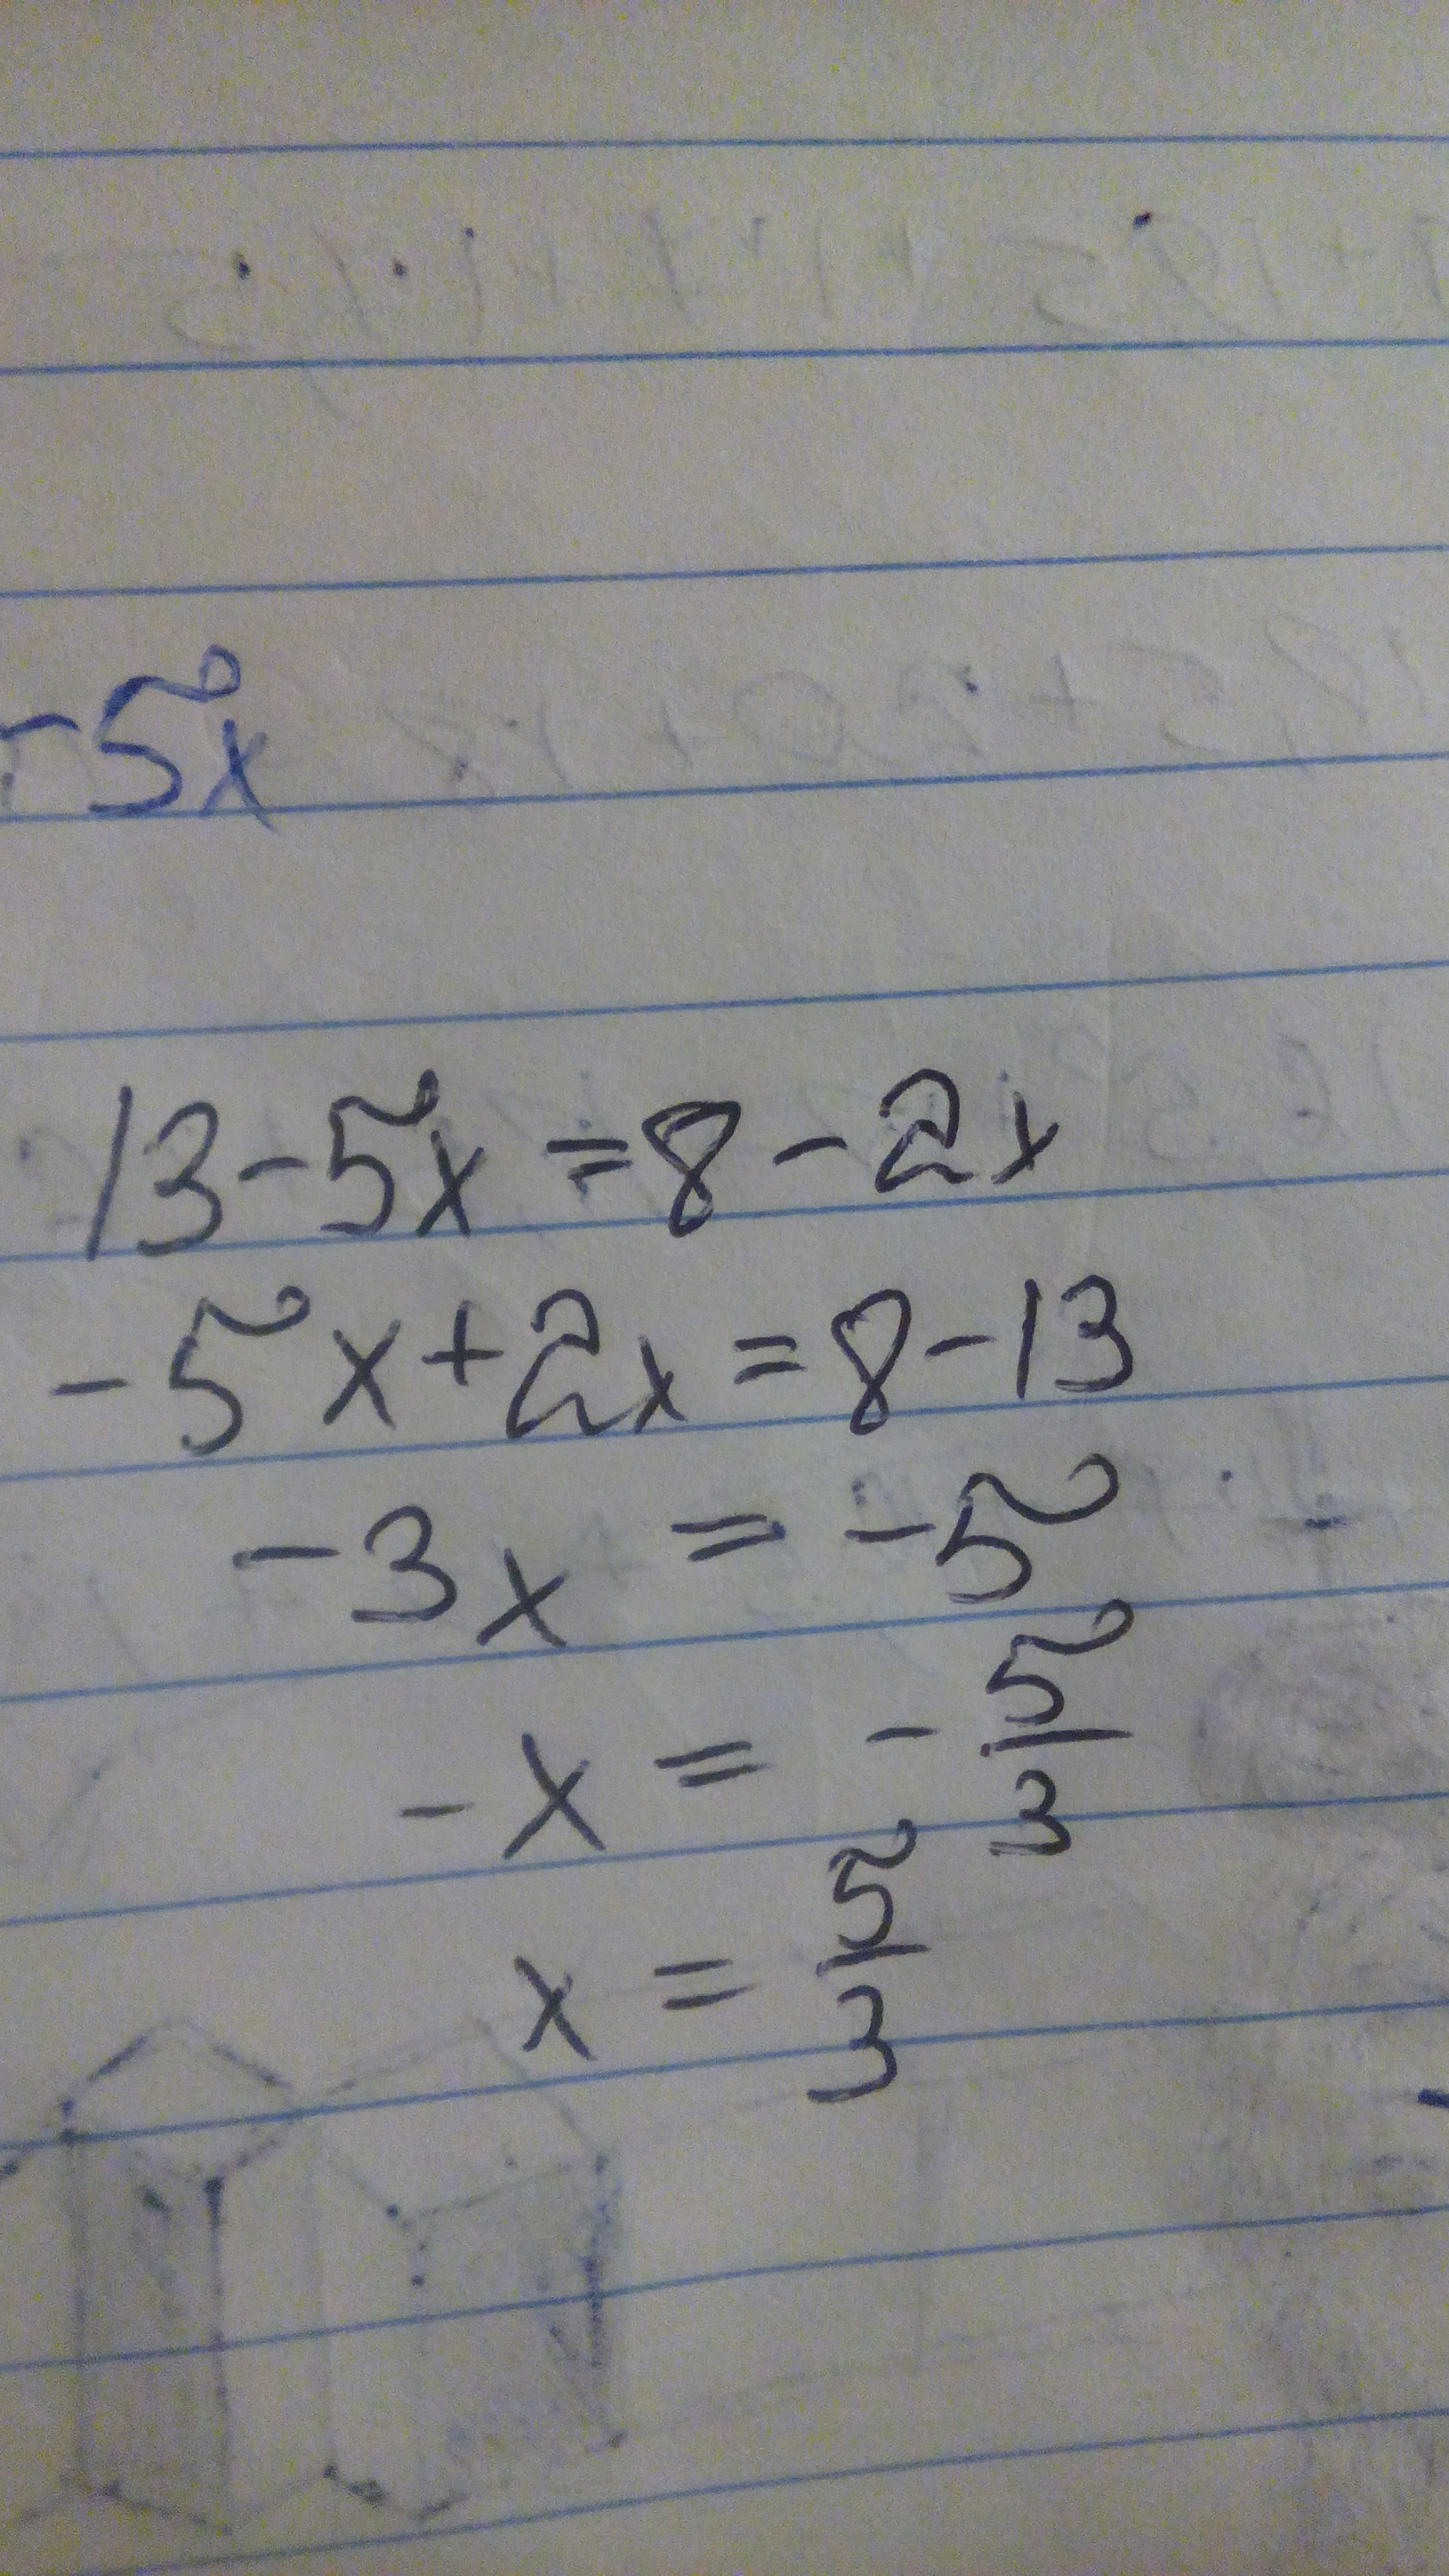 -5x
13-5x=8-2x
-5x+2x=8-13
-3x=-5
-x=-5/3
x=5/3